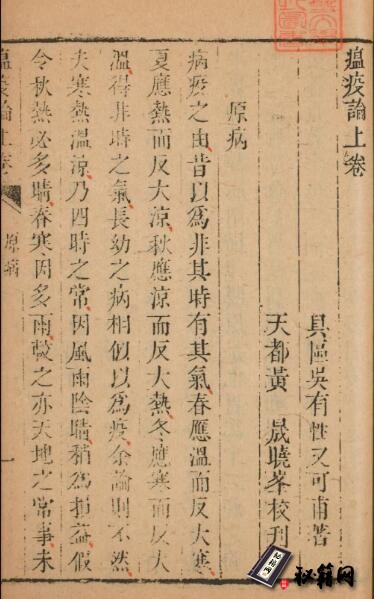 瘟疫論上卷
具區吳有性又可甫著
天都黃晟曉峯校刊
原病
病疫之由昔以爲非其時有其氣春應溫而反大寒
夏應熱而反大涼秋應涼而反大熱冬應寒而反大
溫得非時之氣長幼之病相似以爲疫余論則不然
夫寒熱溫涼乃四時之常因風雨陰晴稍爲損益假
令秋熱必多晴春寒因多雨較之亦天地之常事未
瘟疫論上卷
原病
一
秘籍网